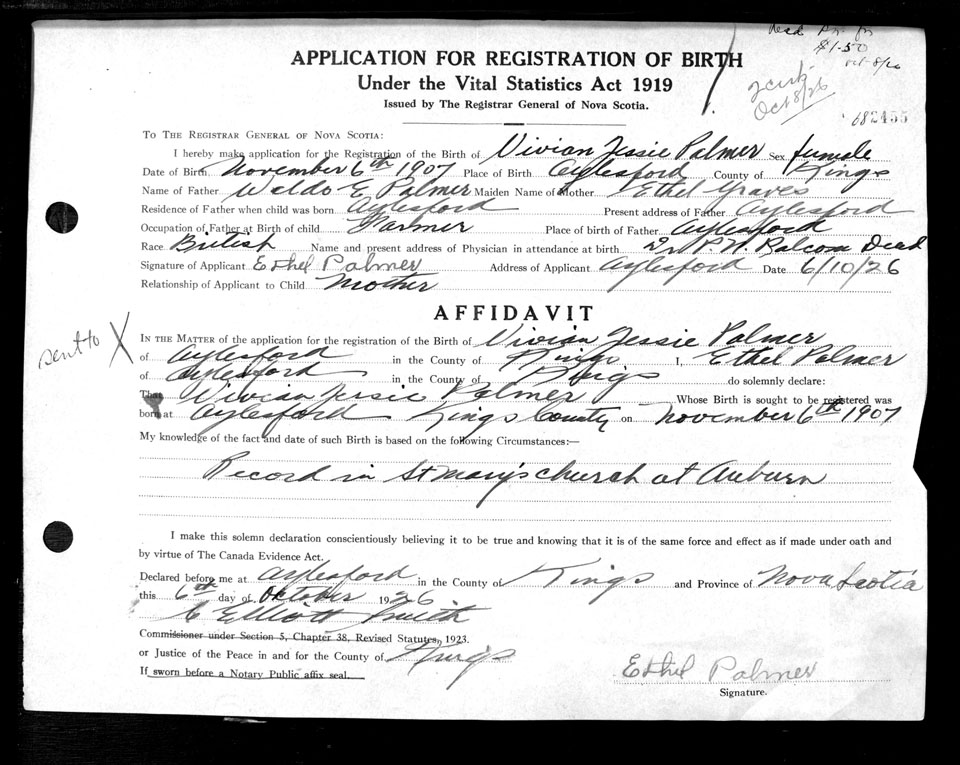 $1.50
Oct 8/26
APPLICATION FOR REGISTRATION OF BIRTH
Under the Vital Statistics Act 1919
Issued by The Registrar General of Nova Scotia.
Oct 8/26
682455
TO THE REGISTRAR GENERAL OF NOVA SCOTIA:
I hereby make application for the Registration of the Birth of Vivian Jessie Palmer Sex female
Date of Birth November 6th 1907 Place of Birth Aylesford County of Kings
Name of Father Waldo E Palmer Maiden Name of Mother Ethel Graves
Residence of Father when child was born Aylesford Present address of Father Aylesford
Occupation of Father at Birth of child Farmer Place of birth of Father Aylesford
Race British Name and present address of Physician in attendance at birth Dr P. N. Balcom Dead
Signature of Applicant Ethel Palmer Address of Applicant Aylesford Date 6/10/26
Relationship of Applicant to Child Mother
AFFIDAVIT
sent to X
IN THE MATTER of the application for the registration of the Birth of Vivian Jessie Palmer
of Aylesford in the County of Kings I, Ethel Palmer
of Aylesford in the County of Kings do solemnly declare:
That Vivian Jessie Palmer Whose Birth is sought to be registered was
born at Aylesford Kings County on November 6th 1907
My knowledge of the fact and date of such Birth is based on the following Circumstances:—
Record in St Mary's church at Auburn
I make this solemn declaration conscientiously believing it to be true and knowing that it is of the same force and effect as if made under oath and
by virtue of The Canada Evidence Act.
Declared before me at Aylesford in the County of Kings and Province of Nova Scotia
this 6th day of Oktober 1926
C Elliott Smith
Commissioner under Section 5, Chapter 38, Revised Statutes, 1923.
or Justice of the Peace in and for the County of Kings
If sworn before a Notary Public affix seal.
Ethel Palmer
Signature.